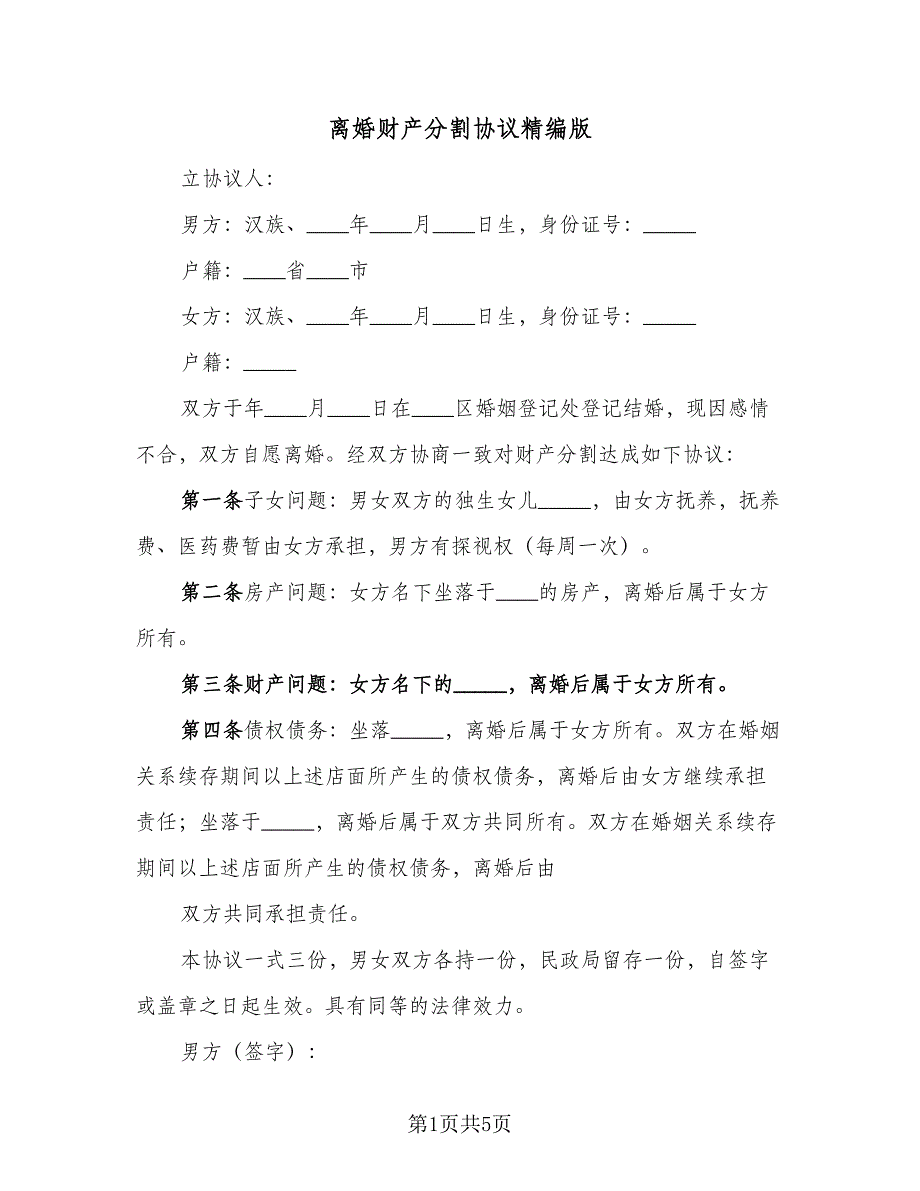 离婚财产分割协议精编版
立协议人：
男方：汉族、____年____月____日生，身份证号：_____
户籍：____省____市
女方：汉族、____年____月____日生，身份证号：_____
户籍：_____
双方于年____月____日在____区婚姻登记处登记结婚，现因感情
不合，双方自愿离婚。经双方协商一致对财产分割达成如下协议：
第一条子女问题：男女双方的独生女儿_____，由女方抚养，抚养
费、医药费暂由女方承担，男方有探视权（每周一次）。
第二条房产问题：女方名下坐落于____的房产，离婚后属于女方
所有。
第三条财产问题：女方名下的_____，离婚后属于女方所有。
第四条债权债务：坐落_____，离婚后属于女方所有。双方在婚姻
关系续存期间以上述店面所产生的债权债务，离婚后由女方继续承担
责任；坐落于_____，离婚后属于双方共同所有。双方在婚姻关系续存
期间以上述店面所产生的债权债务，离婚后由
双方共同承担责任。
本协议一式三份，男女双方各持一份，民政局留存一份，自签字
或盖章之日起生效。具有同等的法律效力。
男方（签字）：
第1页共5页